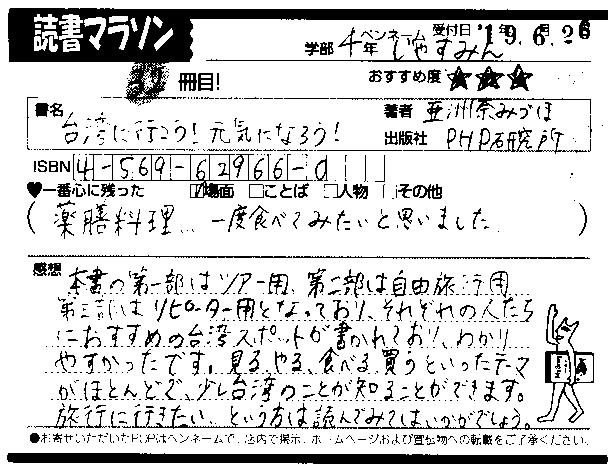 読書マラソン
学部 4年 ペンネーム じゃすみん 受付日 '19.6.26
冊目!
おすすめ度 ★★★
書名 台湾に行こう!元気になろう!
著者 亜洲奈みづほ
出版社 PHP研究所
ISBN 4-569-62966-0
♥一番心に残った ☑場面 □ことば □人物 □その他
(薬膳料理... 一度食べてみたいと思いました)
感想 本書の第一部はツアー用、第二部は自由旅行用
第三部はリピーター用となっており、それぞれの人たち
におすすめの台湾スポットが書かれており、わかり
やすかったです。見る、やる、食べる、買うといったテーマ
がほとんどで、少し台湾のことが知ることができます。
旅行に行きたい、という方は読んでみてはいかがでしょう。
●お寄せいただいたPOPはペンネームで、店内で掲示、ホームページおよび宣伝物への転載をご了承ください。